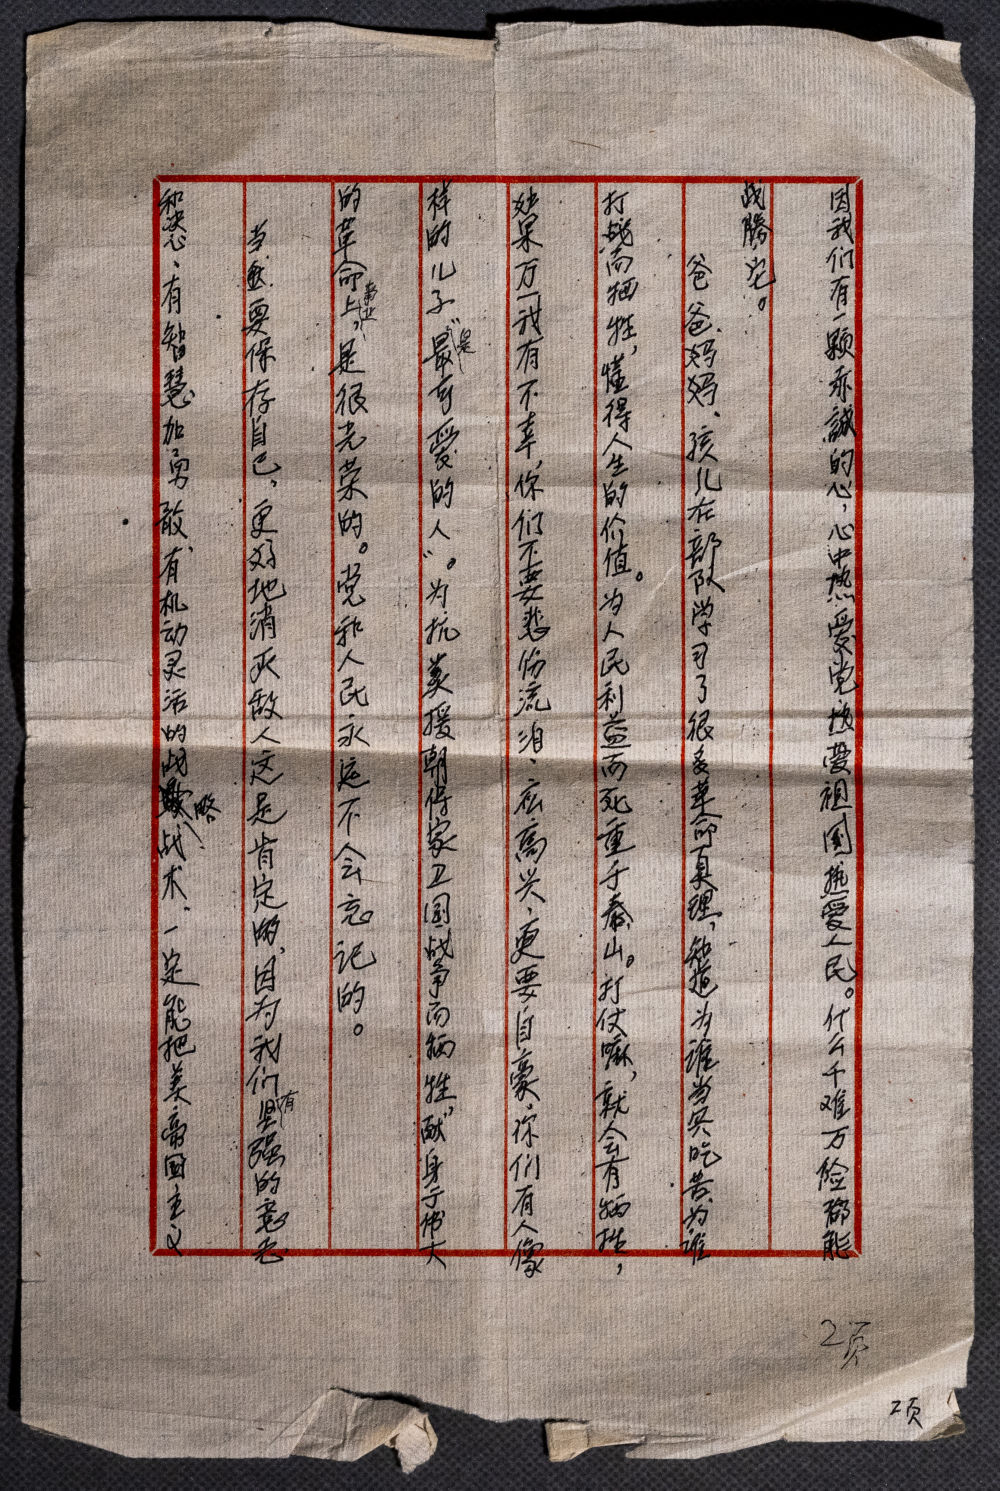 因我们有一颗赤誠的心，心中热爱党热爱祖国热爱人民。什么千难万险都能
战勝它。
爸爸妈妈、孩儿在部队学习了很多革命真理，知道为谁当兵吃苦、为谁
打战而牺牲，懂得人生的价值。为人民利益而死重于泰山。打仗嘛，就会有牺牲，
如果万一我有不幸，你们不要悲伤流泪、应高兴、更要自豪，你们有人像
样的儿子“是最可爱的人”。为抗美援朝保家卫国战争而牺牲，献身于伟大
的革命事业上，是很光荣的。党和人民永远不会忘记的。
当然要保存自己，更好地消灭敌人这是肯定的，因为我们有坚强的意志
和决心、有智慧加勇敢，有机动灵活的战略战术，一定能把美帝国主义
2页
2页